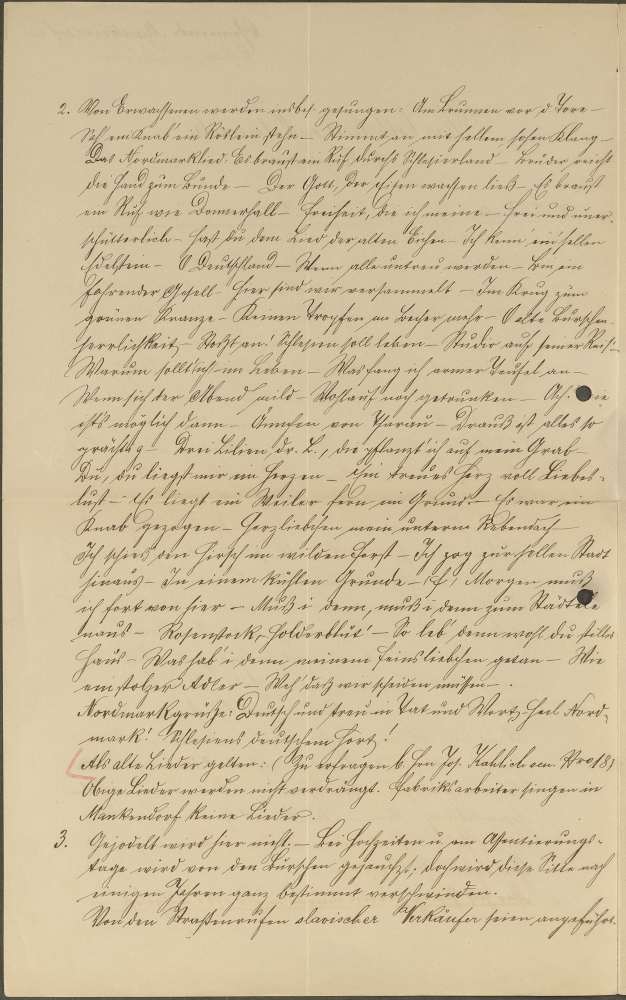 2. Von Erwachsenen werden insbes. gesungen: Am Brunnen vor d. Tore –
Sah ein Knab' ein Röslein stehn – Stimmt an mit hellem hohen Klang –
Das Nordmarklied: Es braust ein Ruf durchs Schlesierland – Brüder reicht
die Hand zum Bunde – Der Gott, der Eisen wachsen ließ – Es braust
ein Ruf wie Donnerhall – Freiheit, die ich meine – Frei und uner-
schütterlich – Hast du dem Lied der alten Eichen – Ich kenn' ein' hellen
Edelstein – O Deutschland – Wenn alle untreu werden – Bin ein
fahrender Gesell – Hier sind wir versammelt – Im Krug zum
grünen Kranze – Keinen Tropfen im Becher mehr – O alte Burschen-
herrlichkeit – Stoßt an! Schlesien soll leben – Studio auf seiner Reis' –
Warum sollt' ich im Leben – Was fang ich armer Teufel an –
Wenn sich der Abend mild – Wohlauf noch getrunken – Ach, wie
ist's möglich dann – Ännchen von Tharau – Drauß ist alles so
prächtig – Drei Lilien, dr. L., die pflanzt' ich auf mein Grab –
Du, du liegst mir im Herzen – Ein treues Herz voll Liebes-
lust – Es liegt ein Weiler fern im Grund – Es war ein
Knab' gezogen – Herzliebchen mein unterm Rebendach –
Ich schieß' den Hirsch im wilden Forst – Ich zog zur hellen Stadt
hinaus – In einem kühlen Grunde – Morgen muß
ich fort von hier – Muß i denn, muß i denn zum Städtele
naus – Rosenstock, Holderblüt' – So leb' denn wohl du stilles
Haus – Was hab' i denn meinem Feinsliebchen getan – Wie
ein stolzer Adler – Weh' daß wir scheiden müssen –.
Nordmarkgrüße: Deutsch und treu in Tat und Wort, Heil Nord-
mark! Schlesiens deutschem Hort!
Als alte Lieder gelten: (Zu erfragen b. Hrn Jos. Kahlich sen. Nro 18)
Obige Lieder werden nicht verdrängt. Fabriksarbeiter singen in
Mankendorf keine Lieder.
3. Gejodelt wird hier nicht. – Bei Hochzeiten u. am Assentierungs-
tage wird von den Burschen gejauchzt; doch wird diese Sitte nach
einigen Jahren ganz bestimmt verschwinden.
Von den Straßenrufen slavischer Verkäufer seien angeführt.